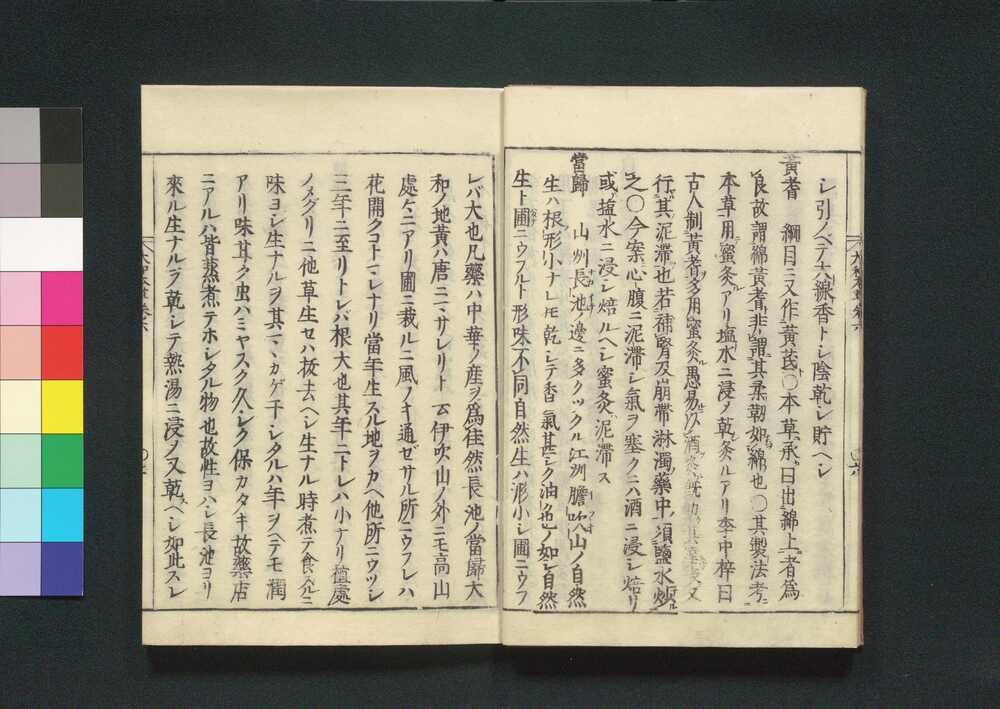 シ引ノベテ大線香トシ陰乾シ貯ヘシ
黃耆 綱目ニ又作黃芪〇本草承曰出綿上者為
良故謂綿黃耆非謂其柔韌如綿也〇其製法考
本草用蜜灸アリ塩水ニ浸ノ乾灸ルアリ李中梓曰
古人制黃耆多用蜜灸愚易以酒灸 其 又
行其泥滯也若補腎及崩帶淋濁藥中須鹽水炒
之〇今案心腹ニ泥滯シ氣ヲ塞クニハ酒ニ浸シ焙リ
或塩水ニ浸シ焙ルヘシ蜜灸泥滯ス
當歸 山州長池ノ邊ニ多クツクル江洲膽吹山ノ自然
生ハ根形小ナレ𪜈乾シテ香氣甚シク油色ノ如シ自然
生ト圃ニウフルト形味不同自然生ハ形小シ圃ニウフ
レバ大也凡藥ハ中華ノ產ヲ為佳然長池ノ當歸大
和ノ地黃ハ唐ニマサレリト云伊吹山ノ外ニモ高山
處々ニアリ圃ニ栽ルニ風ノキ通ゼサル所ニウフレハ
花開クコトマレナリ當年生スル地ヲカヘ他所ニウツシ
三年ニ至リトレバ根大也其年ニトレハ小ナリ植處
ノメグリニ他草生セハ抜去ヘシ生ナル時煮テ食スルニ
味ヨシ生ナルヲ其マヽカゲ干シタルハ年ヲヘテモ潤
アリ味甘ク虫ハミヤスク久シク保カタキ故藥店
ニアルハ皆蒸煮テホシタル物也故性ヨハシ長池ヨリ
來ル生ナルヲ乾シテ熱湯ニ浸ノ又乾ヘシ如此スレ